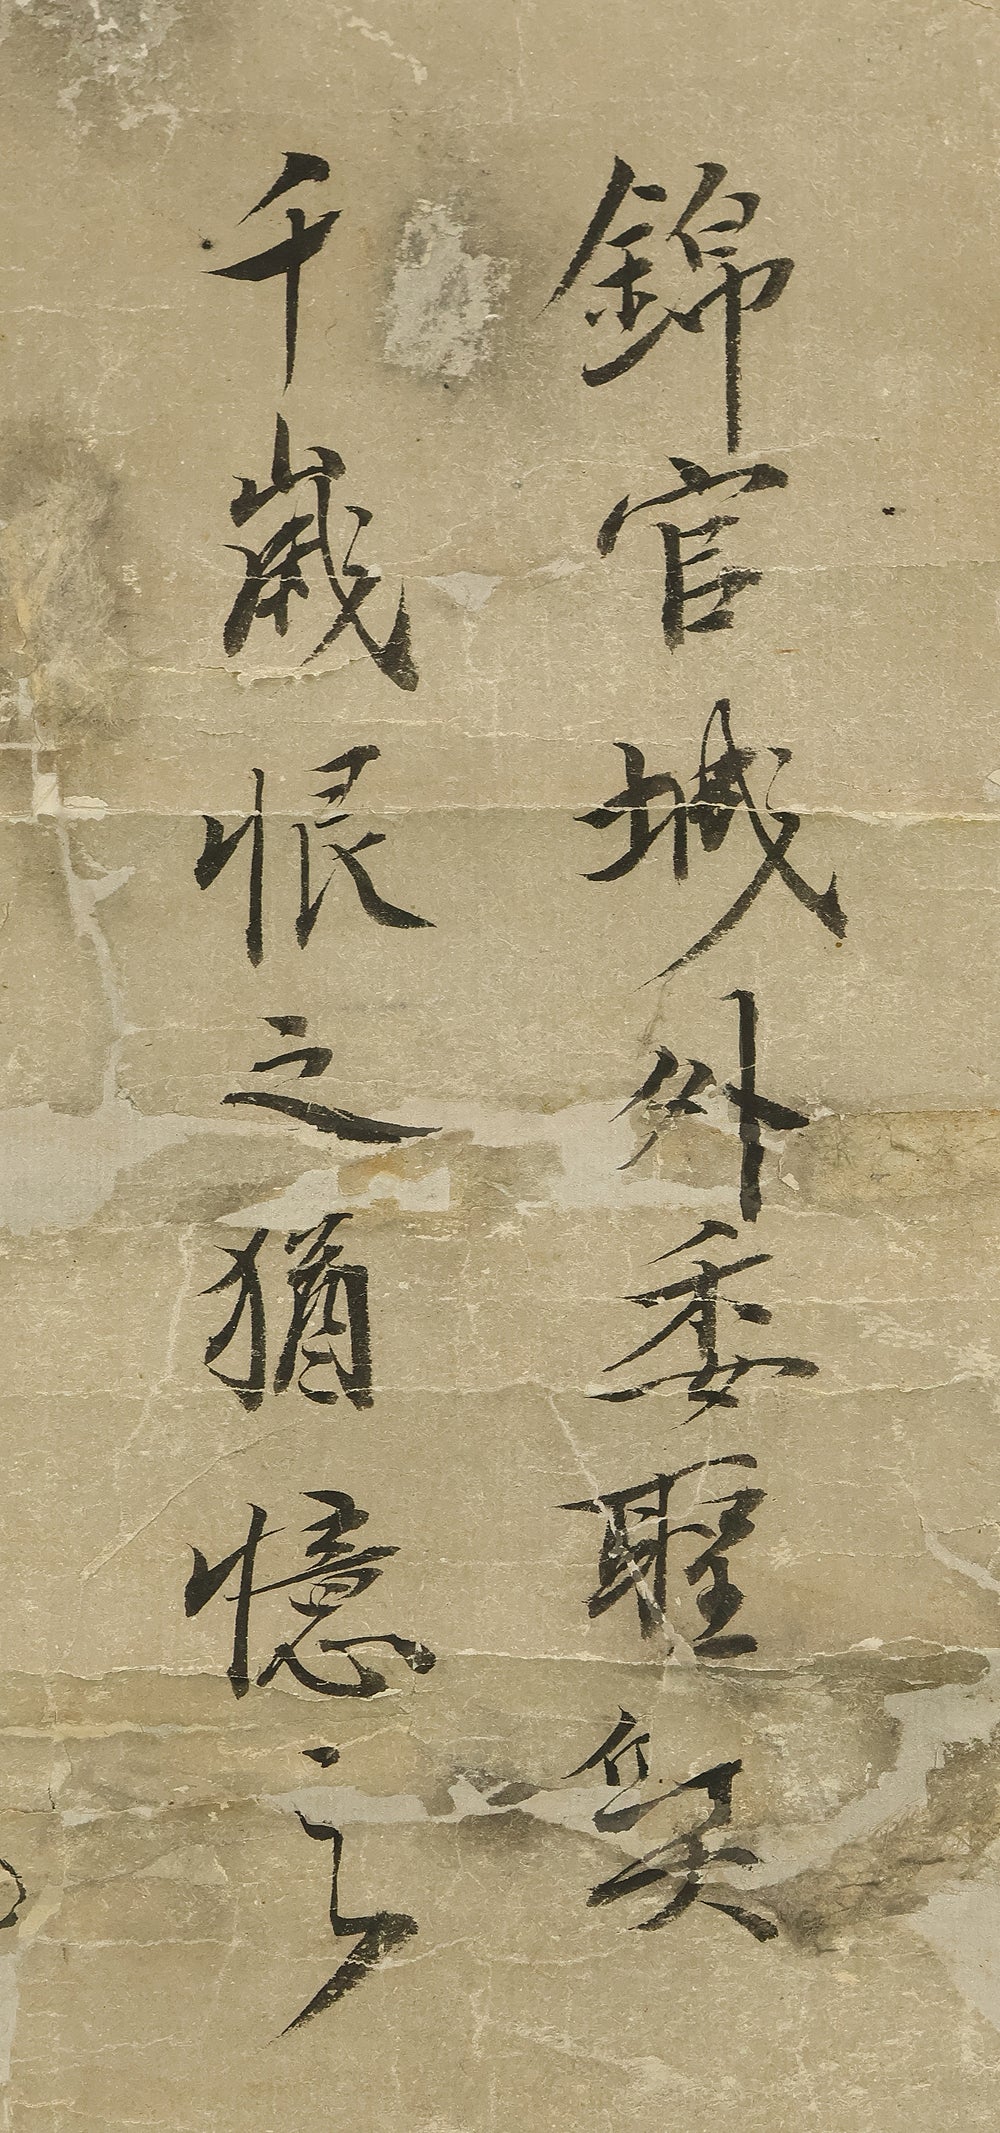 錦官城外委聖
千歲恨之猶憶之